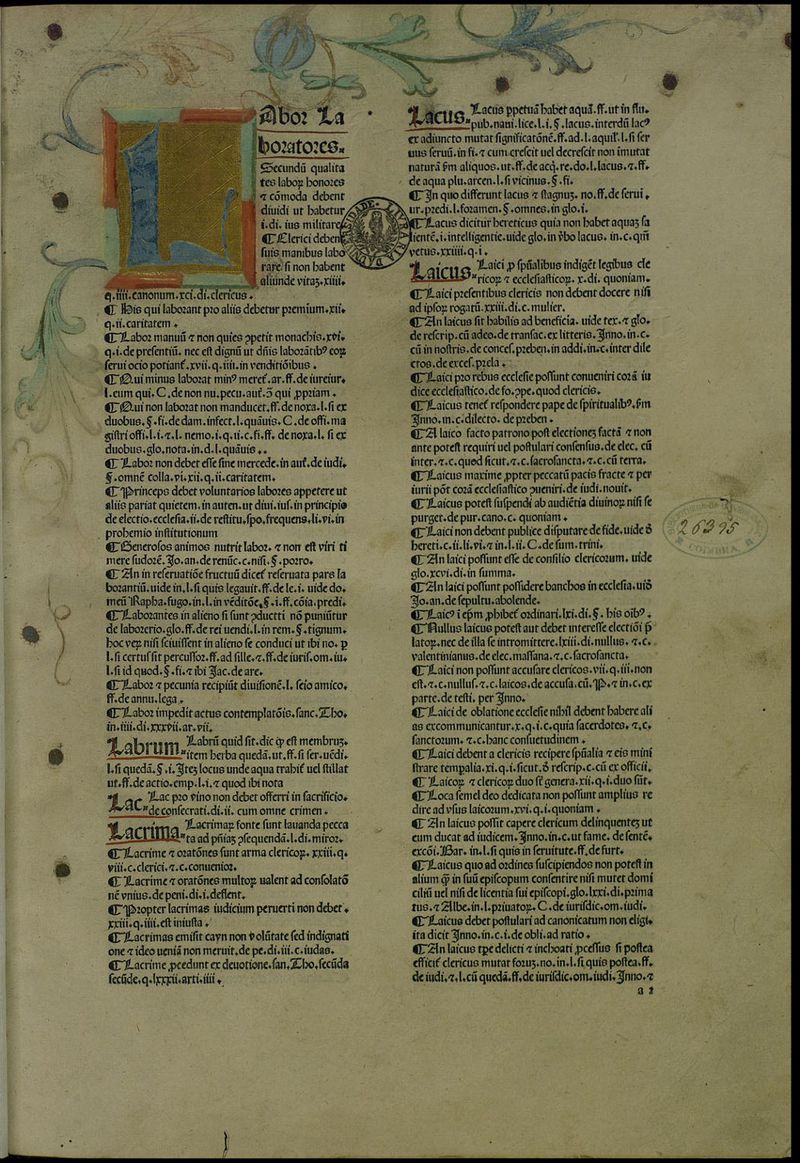 Labor La
boratores.
Secundũ qualita
tes laboꝝ honores
⁊ cõmoda debent
diuidi ut habetur
i.di. ius militare
¶ Clerici debent
suis manibus labo
rare si non habent
aliunde vitaʒ.xiiii.
q.iiii.canonum.xci.di.clericus.
¶ His qui laborant pro aliis debetur premium.xii.
q.ii.caritatem.
¶ Labor manuũ ⁊ non quies ꝯpetit monachis.xvi.
q.i.de presentiũ. nec est dignũ ut dñis laborãtibꝰ eoꝝ
serui ocio potianť.xvii.q.iiii.in venditiõibus.
¶ Qui minus laborat minꝰ mereť.ar.ff.de iureiur.
l.eum qui.C.de non nu.pecu.auť.õ qui ꝓpriam.
¶ Qui non laborat non manducet.ff.de noxa.l.si ex
duobus.§.fi.de dam.infect.l.quãuis.C.de offi.ma
gistri offi.l.i.⁊.l. nemo.i.q.ii.c.fi.ff. de noxa.l. si ex
duobus.glo.nota.in.d.l.quãuis..
¶ Labor non debet esse sine mercede.in auť.de iudi.
§.omnẽ colla.vi.xii.q.ii.caritatem.
¶ Princeps debet voluntarios labores appetere ut
aliis pariat quietem.in auten.ut diui.iuf.in principio
de electio.ecclesia.ii.de restitu.spo.frequens.li.vi.in
probemio institutionum
¶ Generosos animos nutrit labor. ⁊ non est viri ti
mere sudorẽ.Jo.an.de renũc.c.nisi.§.porro.
¶ An in reseruatiõe fructuũ diceť reseruata pars la
borantiũ.uide in.l.si quis legauit.ff.de le.i. uide do.
meũ Rapha.fugo.in.l.in vẽditõe.§.i.ff.cõia.predi.
¶ Laborantes in alieno si sunt ꝓductti nõ puniũtur
de laborerio.glo.ff.de rei uendi.l.in rem.§.tignum.
hoc veꝝ nisi sciuissent in alieno se conduci ut ibi no. ꝑ
l.si certus sit percussor.ff.ad sille.⁊.ff.de iuris.om.iu.
l.si id quod.§.fi.⁊ ibi Jac.de are.
¶ Labor ⁊ pecunia recipiũt diuisionẽ.l. seio amico.
ff.de annu.lega.
¶ Labor impedit actus contemplatõis.sanc.Tho.
in.iiii.di.xxxvii.ar.vii.
Labrum. Labrũ quid sit.dic ꝙ est membruʒ.
item herba quedã.ut.ff.si ser.uẽdi.
l.si quedã.§.i.Jteʒ locus unde aqua trahiť uel stillat
ut.ff.de actio.emp.l.i.⁊ quod ibi nota
Lac Lac pro vino non debet offerri in sacrificio.
de consecrati.di.ii. cum omne crimen.
Lacrima. Lacrimaꝝ fonte sunt lauanda pecca
ta ad pñiaʒ ꝯsequendã.l.di.miror.
¶ Lacrime ⁊ oratõnes sunt arma clericoꝝ. xxiii.q.
viii.c.clerici.⁊.c.conuenior.
¶ Lacrime ⁊ oratõnes multoꝝ ualent ad consolatõ
nẽ vnius.de peni.di.i.deflent.
¶ Propter lacrimas iudicium peruerti non debet.
xxiii.q.iiii.est iniusta.
¶ Lacrimas emisit cayn non volũtate sed indignati
one ⁊ ideo ueniã non meruit.de pe.di.iii.c.iudas.
¶ Lacrime ꝓcedunt ex deuotione.san.Tho.secũda
secũde.q.lxxxii.arti.iiii.
Lacus. Lacus ꝑpetuã habet aquã.ff.ut in flu.
pub.naui.lice.l.i.§.lacus.interdũ lacꝰ
ex adiuncto mutat significatõnẽ.ff.ad.l.aquil̃.l.si ser
uus seruũ.in fi.⁊ cum crescit uel decrescit non ĩmutat
naturã ẜm aliquos.ut.ff.de acq̃.re.do.l.lacus.⁊.ff.
de aqua plu.arcen.l.si vicinus.§.fi.
¶ Jn quo differunt lacus ⁊ stagnuʒ. no.ff.de serui.
ur.predi.l.foramen.§.omnes.in glo.i.
¶ Lacus dicitur hereticus quia non habet aquaʒ sa
lientẽ.i.intelligentie.uide glo.in ṽbo lacus. in.c.qm̃
vetus.xxiiii.q.i.
Laicus. Laici ꝓ spũalibus indigẽt legibus cle
ricoꝝ ⁊ ecclesiasticoꝝ. x.di. quoniam.
¶ Laici presentibus clericis non debent docere nisi
ad ipsoꝝ rogatũ.xxiii.di.c.mulier.
¶ An laicus sit habilis ad beneficia. uide tex.⁊ glo.
de rescrip.cũ adeo.de transac.ex litteris.Jnno.in.c.
cũ in nostris.de conces.preben.in addi.in.c.inter dile
ctos.de exces.prela.
¶ Laici pro rebus ecclesie possunt conueniri corã iu
dice ecclesiastico.de fo.ꝯpe.quod clericis.
¶ Laicus teneť respondere pape de spiritualibꝰ.ẜm
Jnno.in.c.dilecto. de preben.
¶ A laico facto patrono post electioneʒ factã ⁊ non
ante potest requiri uel postulari consensus.de elec. cũ
inter.⁊.c.quod sicut.⁊.c.sacrosancta.⁊.c.cũ terra.
¶ Laicus maxime ꝓpter peccatũ pacis fracte ⁊ per
iurii põt corã ecclesiastico ꝯueniri.de iudi.nouit.
¶ Laicus potest suspendi ab audiẽtia diuinoꝝ nisi se
purget.de pur.cano.c. quoniam.
¶ Laici non debent publice disputare de fide.uide õ
hereti.c.ii.li.vi.⁊ in.l.ii.C.de sum.trini.
¶ An laici possunt esse de consilio clericorum. uide
glo.xcvi.di.in summa.
¶ An laici possunt possidere banchos in ecclesia.uiõ
Jo.an.de sepultu.abolende.
¶ Laicꝰ ĩ epm̃ ꝓhibeť ordinari.lxi.di.§. his oibꝰ.
¶ Nullus laicus potest aut debet interesse electiõi p̃
latoꝝ.nec de illa se intromittere.lxiii.di.nullus. ⁊.c.
valentinianus.de elec.massana.⁊.c.sacrosancta.
¶ Laici non possunt accusare clericos.vii.q.iii.non
est.⁊.c.nullus.⁊.c.laicos.de accusa.cũ.P.⁊ in.c.ex
parte.de testi. per Jnno.
¶ Laici de oblatione ecclesie nihil debent habere ali
as excommunicantur.x.q.i.c.quia sacerdotes. ⁊.c.
sanctorum. ⁊.c.hanc consuetudinem.
¶ Laici debent a clericis recipere spũalia ⁊ eis mini
strare tempalia.xi.q.i.sicut.õ rescrip.c.cũ ex officii.
¶ Laicoꝝ ⁊ clericoꝝ duo sť genera.xii.q.i.duo sũt.
¶ Loca semel deo dedicata non possunt amplius re
dire ad vsus laicorum.xvi.q.i.quoniam.
¶ An laicus possit capere clericum delinquenteʒ ut
eum ducat ad iudicem.Jnno.in.c.ut fame. de sentẽ.
excõi.Bar. in.l.si quis in seruitute.ff.de furt.
¶ Laicus quo ad ordines suscipiendos non potest in
alium ꝙ in suũ episcopum consentire nisi mutet domi
ciliũ uel nisi de licentia sui episcopi.glo.lxxi.di.prima
tus.⁊ Albe.in.l.priuatoꝝ.C.de iurisdic.om.iudi.
¶ Laicus debet postulari ad canonicatum non eligi.
ita dicit Jnno.in.c.i.de obli.ad ratio.
¶ An laicus tp̃e delicti ⁊ inchoati ꝓcessus si postea
efficiť clericus mutat foruʒ.no.in.l.si quis postea.ff.
de iudi.⁊.l.cũ quedã.ff.de iurisdic.om.iudi.Jnno.⁊
a 2
26395
COIMBRA